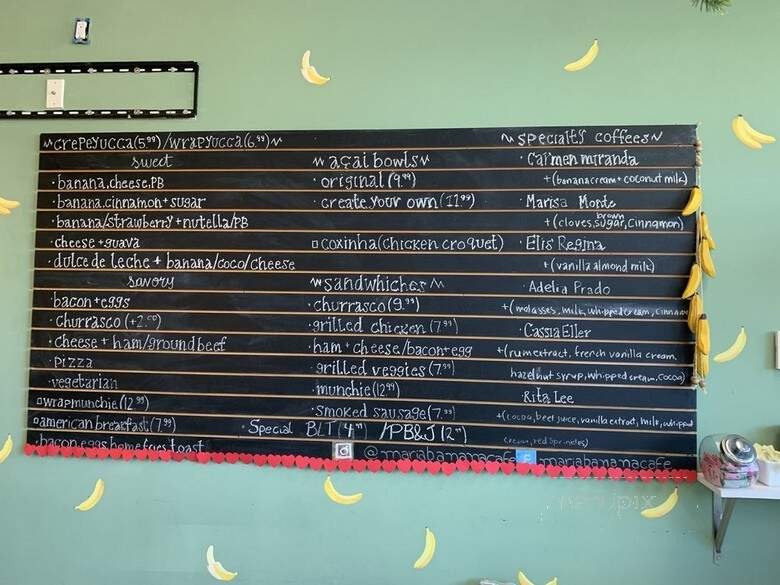 crepeyucca(5.99)/wrapyucca(6.99)
sweet
· banana, cheese, PB
· banana, cinnamon + sugar
· banana/strawberry + nutella/PB
· cheese + guava
· dulce de leche + banana/coco/cheese
savory
· bacon + eggs
· churrasco (+2.00)
· cheese + ham/ground beef
· pizza
· vegetarian
wrapmunchie (12.99)
american breakfast (7.99)
· bacon, eggs, homefries, toast
açai bowls
· original (9.99)
· create your own (11.99)
coxinha (chicken croquet)
sandwhiches
· churrasco (9.99)
· grilled chicken (7.99)
· ham + cheese/bacon + egg
· grilled veggies (7.99)
· munchie (12.99)
· smoked sausage (7.99)
· Special BLT (4.99) / PB&J (2.99)
@mariabananacafe
f mariabananacafe
specialty coffees
· Carmen miranda
+(banana cream + coconut milk)
· Marisa Monte
+(cloves, brown sugar, cinnamon)
· Elis Regina
+(vanilla almond milk)
· Adelia Prado
+(molasses, milk, whipped cream, cinnamon
· Cassia Eller
+(rum extract, french vanilla cream,
hazelnut syrup, whipped cream, cocoa)
· Rita Lee
+(cocoa, beet juice, vanilla extract, milk, whipped
cream, red sprinkles)